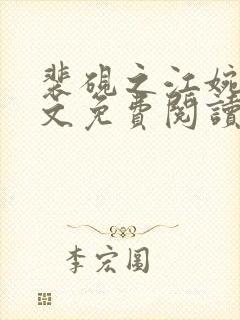 裴硯之江婉
文免費閱讀
李宏圓